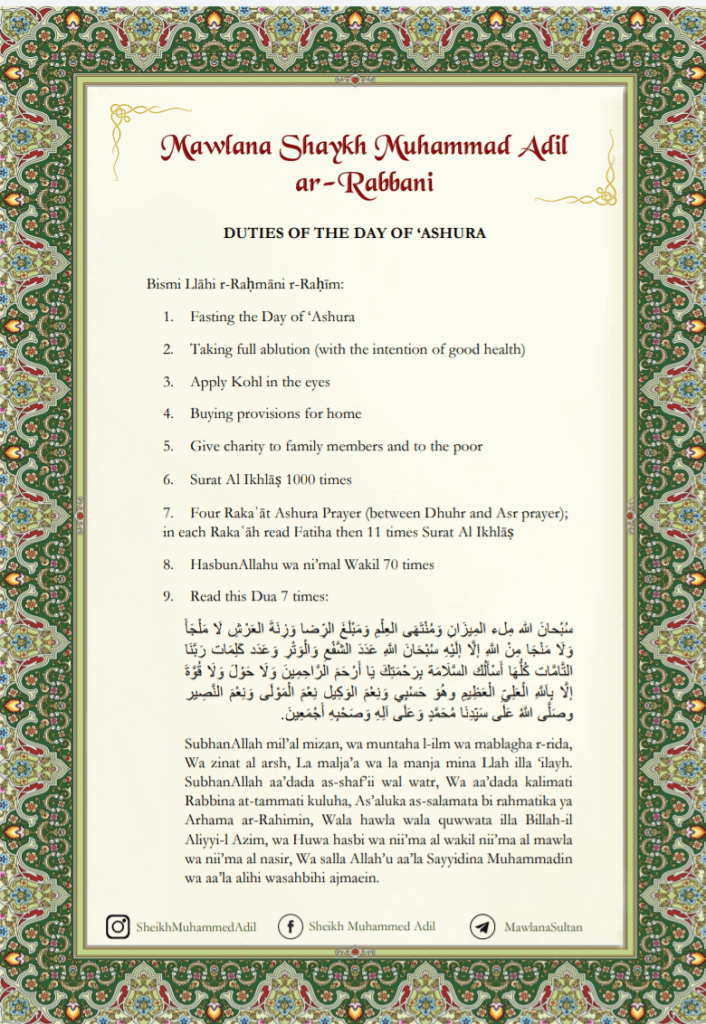 Mawlana Shaykh Muhammad Adil
ar-Rabbani
DUTIES OF THE DAY OF ‘ASHURA
Bismi Llāhi r-Raḥmāni r-Raḥīm:
1. Fasting the Day of ‘Ashura
2. Taking full ablution (with the intention of good health)
3. Apply Kohl in the eyes
4. Buying provisions for home
5. Give charity to family members and to the poor
6. Surat Al Ikhlāṣ 1000 times
7. Four Rakaʿāt Ashura Prayer (between Dhuhr and Asr prayer);
in each Rakaʿāh read Fatiha then 11 times Surat Al Ikhlāṣ
8. HasbunAllahu wa ni’mal Wakil 70 times
9. Read this Dua 7 times:
سُبْحانَ الله مِلء المِيزَانِ وَمُنْتَهَى العِلْمِ وَمَبْلَغَ الرِّضا وَزِنَةَ العَرْشِ لَا مَلْجَأَ
وَلَا مَنْجَا مِنْ اللهِ إلَّا إلَيْهِ سُبْحَانَ اللهِ عَدَدَ الشَّفْعِ وَالْوَتْرِ وَعَدَد كَلِمَات رَبِّنَا
التَّامَّات كُلِّهَا أَسْأَلُك السَّلَامَة بِرَحْمَتِكَ يَا أَرْحَمَ الرَّاحِمِينَ وَلَا حَوْلَ وَلَا قُوَّةَ
إلَّا بِاللهِ العَلِيِّ العَظِيمِ وهُوَ حَسْبِي وَنِعْمَ الوَكِيل نِعْمَ الْمَوْلَى وَنِعْمَ النَّصِير
وصَلَّى اللهُ عَلَى سَيِّدِنَا مُحَمَّدٍ وَعَلَى آلِهِ وَصَحْبِهِ أَجْمَعِينَ.
SubhanAllah mil’al mizan, wa muntaha l-ilm wa mablagha r-rida,
Wa zinat al arsh, La malja’a wa la manja mina Llah illa ‘ilayh.
SubhanAllah aa’dada as-shaf’ii wal watr, Wa aa’dada kalimati
Rabbina at-tammati kuluha, As’aluka as-salamata bi rahmatika ya
Arhama ar-Rahimin, Wala hawla wala quwwata illa Billah-il
Aliyyi-l Azim, wa Huwa hasbi wa nii’ma al wakil nii’ma al mawla
wa nii’ma al nasir, Wa salla Allah’u aa’la Sayyidina Muhammadin
wa aa’la alihi wasahbihi ajmaein.
SheikhMuhammedAdil Sheikh Muhammed Adil MawlanaSultan